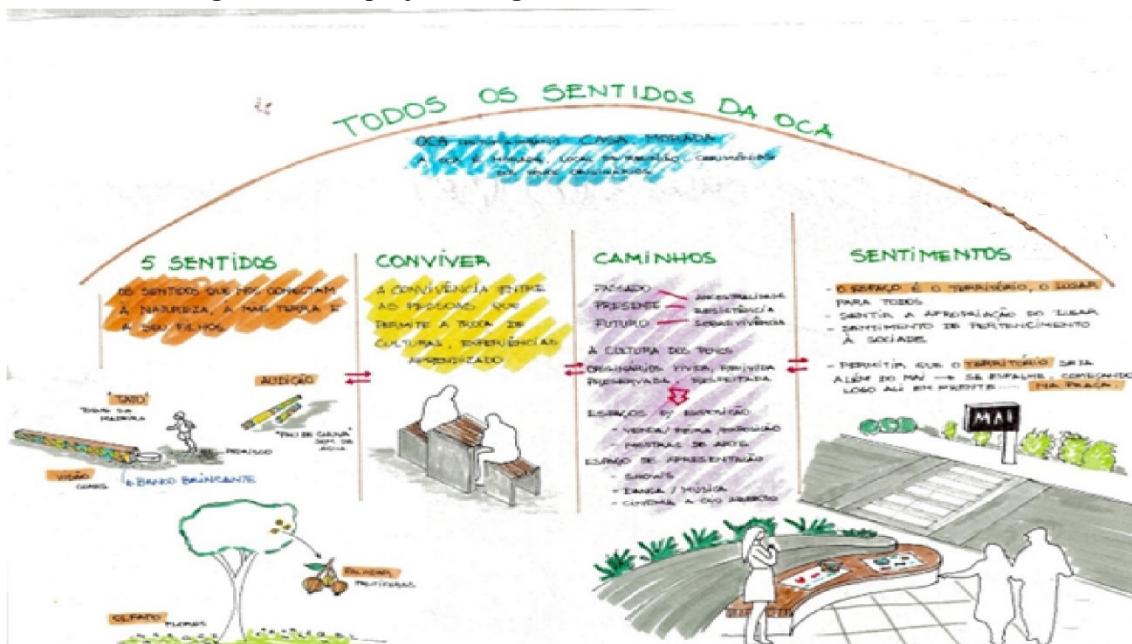 TODOS OS SENTIDOS DA OCA
OCA CASA MORADA
A OCA É MORADA, LOCAL DE REUNIÃO, CERIMÔNIAS
DOS POVOS ORIGINÁRIOS
5 SENTIDOS
OS SENTIDOS QUE NOS CONECTAM
À NATUREZA, A MÃE TERRA E
A SEU FILHOS.
"TATO"
TOQUE DA
MADEIRA
AUDIÇÃO
"PAU DE CHUVA"
SOM DA
ÁGUA
PEDRISCO
VISÃO
CORES
BANCO BRINCANTE
PALADAR
FRUTÍFERAS
OLFATO
FLORES
CONVIVER
A CONVIVÊNCIA ENTRE
AS PESSOAS QUE
PERMITE A TROCA DE
CULTURAS, EXPERIÊNCIAS
APRENDIZADO
CAMINHOS
PASSADO
PRESENTE
FUTURO
ANCESTRALIDADE
RESISTÊNCIA
SOBREVIVÊNCIA
A CULTURA DOS POVOS
ORIGINÁRIOS VIVIDA, REVIVIDA
PRESERVADA, RESPEITADA
ESPAÇOS P/ EXPOSIÇÃO
- VENDA/ FEIRA/ EXPOSIÇÃO
MOSTRAS DE ARTE
ESPAÇO DE APRESENTAÇÃO
- SHOWS
- DANÇA / MÚSICA
- CINEMA A CÉU ABERTO
SENTIMENTOS
- O ESPAÇO É O TERRITÓRIO, O LUGAR
PARA TODOS
- SENTIR A APROPRIAÇÃO DO LUGAR
- SENTIMENTO DE PERTENCIMENTO
À SOCIADE
- PERMITIR QUE O TERRITÓRIO SEJA
ALÉM DO MAI → SE ESPALHE, COMEÇANDO
LOGO ALI EM FRENTE .... NA PRAÇA.
MAI